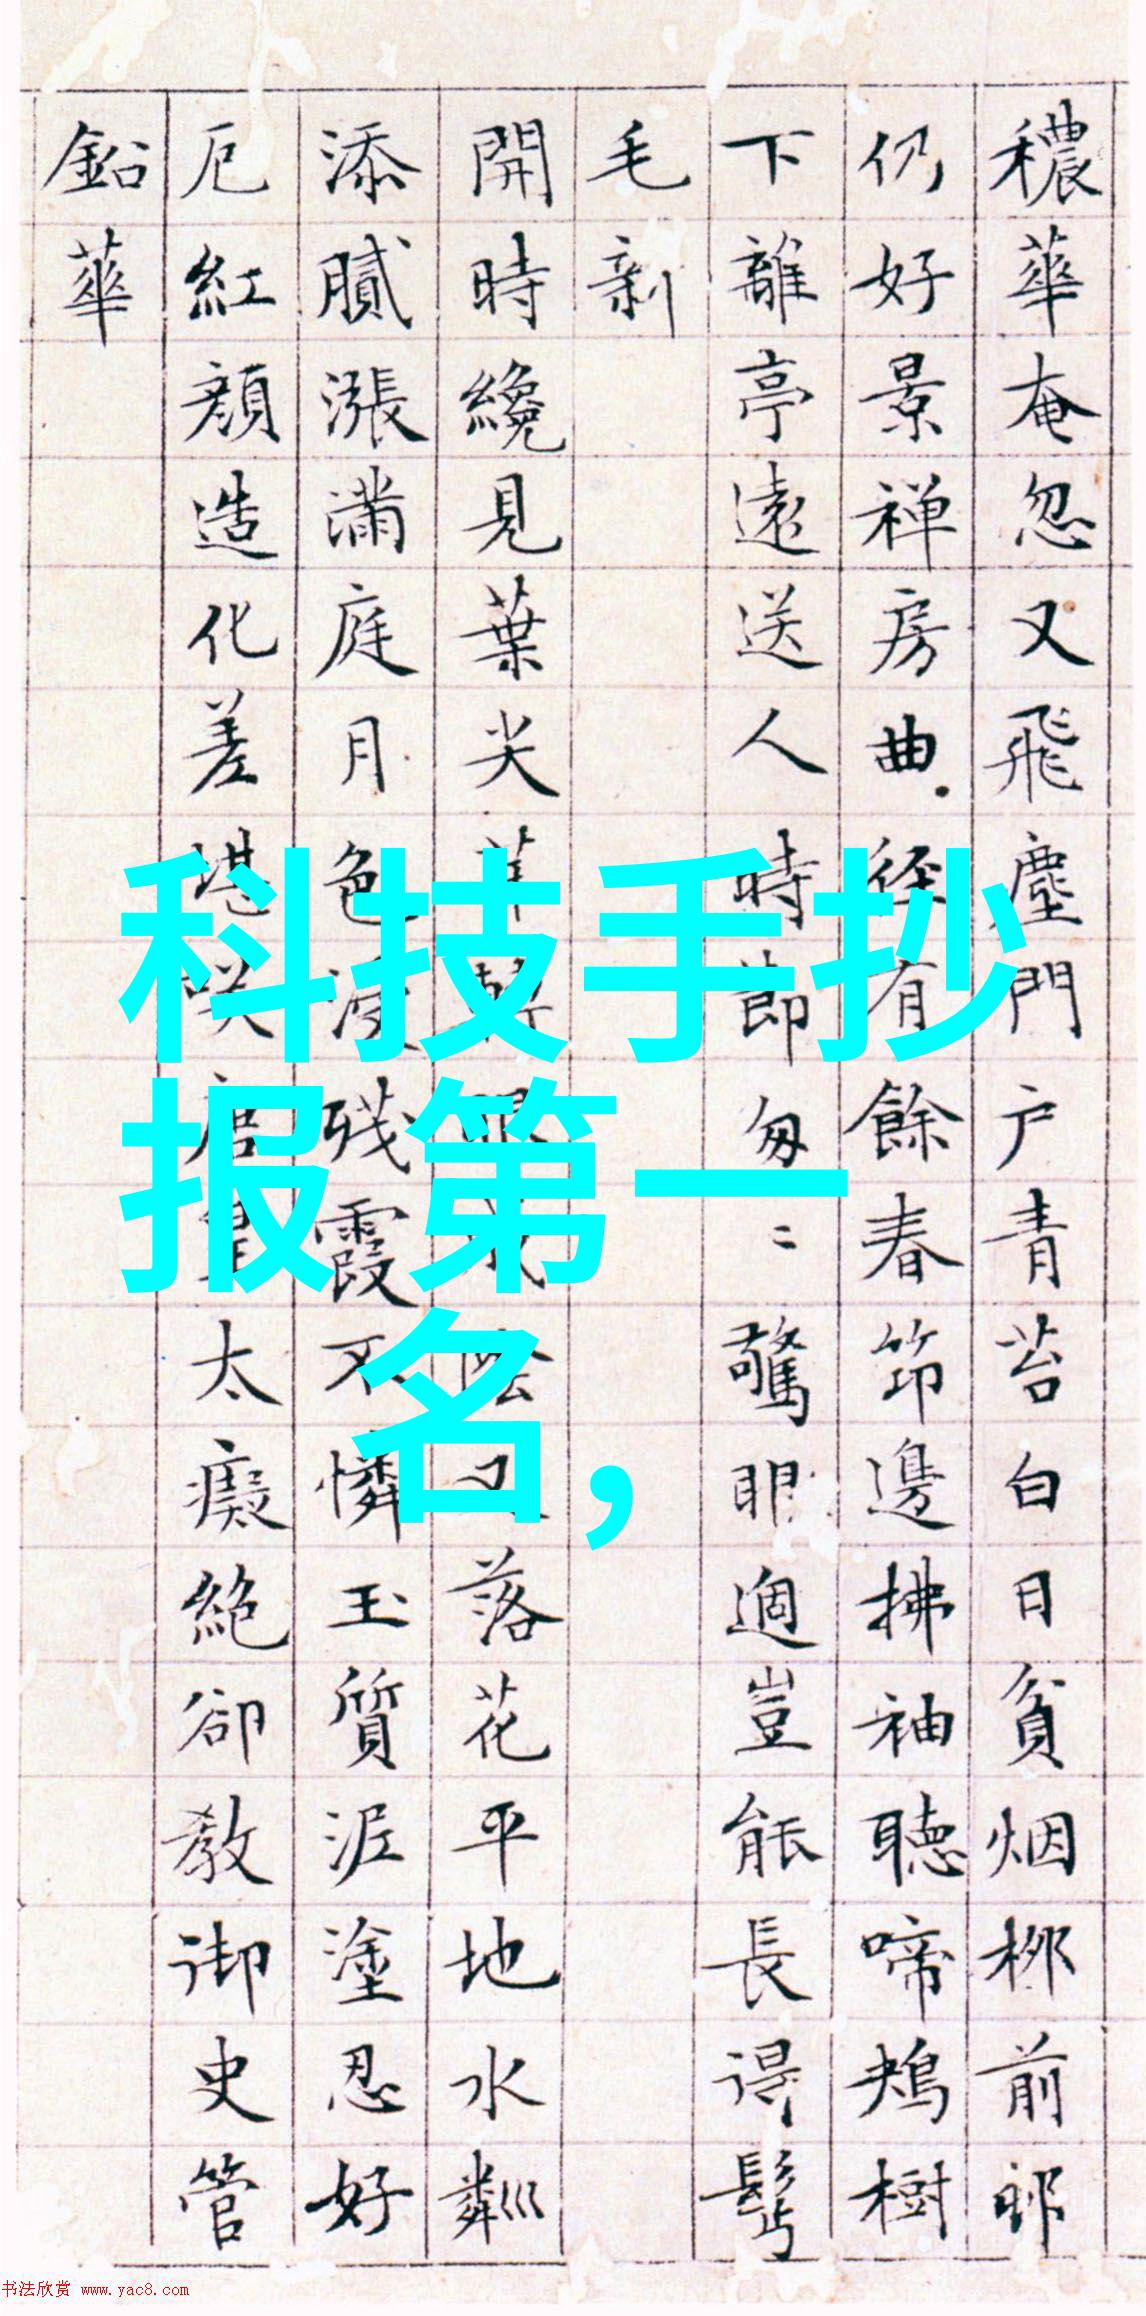 穠華奄忽又飛塵門户青苔白日貧烟柳前邨
仍好景禅房曲径有餘春笻邊拂袖聽啼鴂樹
下離亭遠送人時節匆〻驚眼過豈能長得鬢
毛新
開時纔見葉尖眼成陰又落花平地水粼巛
添膩漲滿庭月色浸残霞不憐玉質泥塗忍好
厄紅顔造化差堪咲唐皇太癡絶卻教御史管
鉛華
科技手抄
报 第一
名，
书法欣赏 www.yac8.com